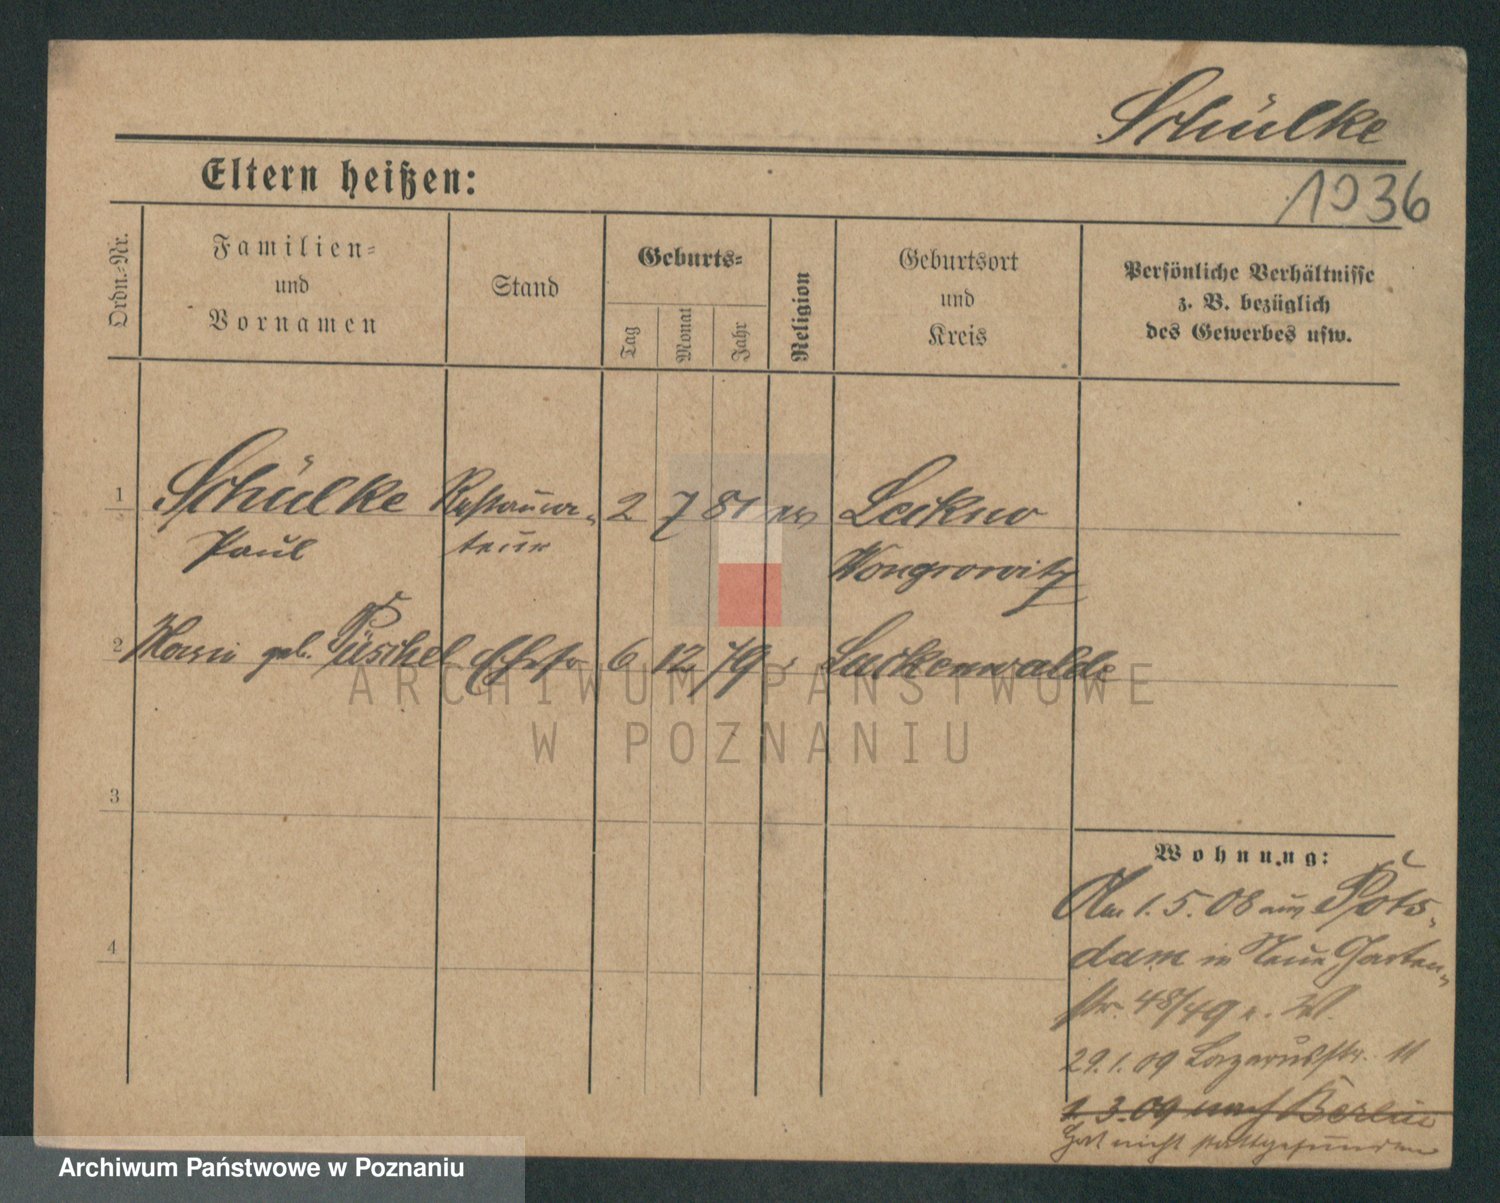 Schülke
Eltern heißen:
1036
Ordn.-Nr.
Familien-
und
Vornamen
Stand
Geburts-
Tag
Monat
Jahr
Religion
Geburtsort
und
Kreis
Persönliche Verhältnisse
z. B. bezüglich
des Gewerbes usw.
1 Schülke Restaura- 2 7 81 ev Lekno
Paul teur Wongrowitz
2 Marie geb. Püschel Ehefr 6 12 79 Luckenwalde
3
4
Wohnung:
Am 1.5.08 aus Pots-
dam in Neue Garten-
str. 48/49 b. W.
29.1.09 Lazarusstr. 11
1.3.09 nach Berlin
Hat nicht stattgefunden
ARCHIWUM PAŃSTWOWE
W POZNANIU
Archiwum Państwowe w Poznaniu